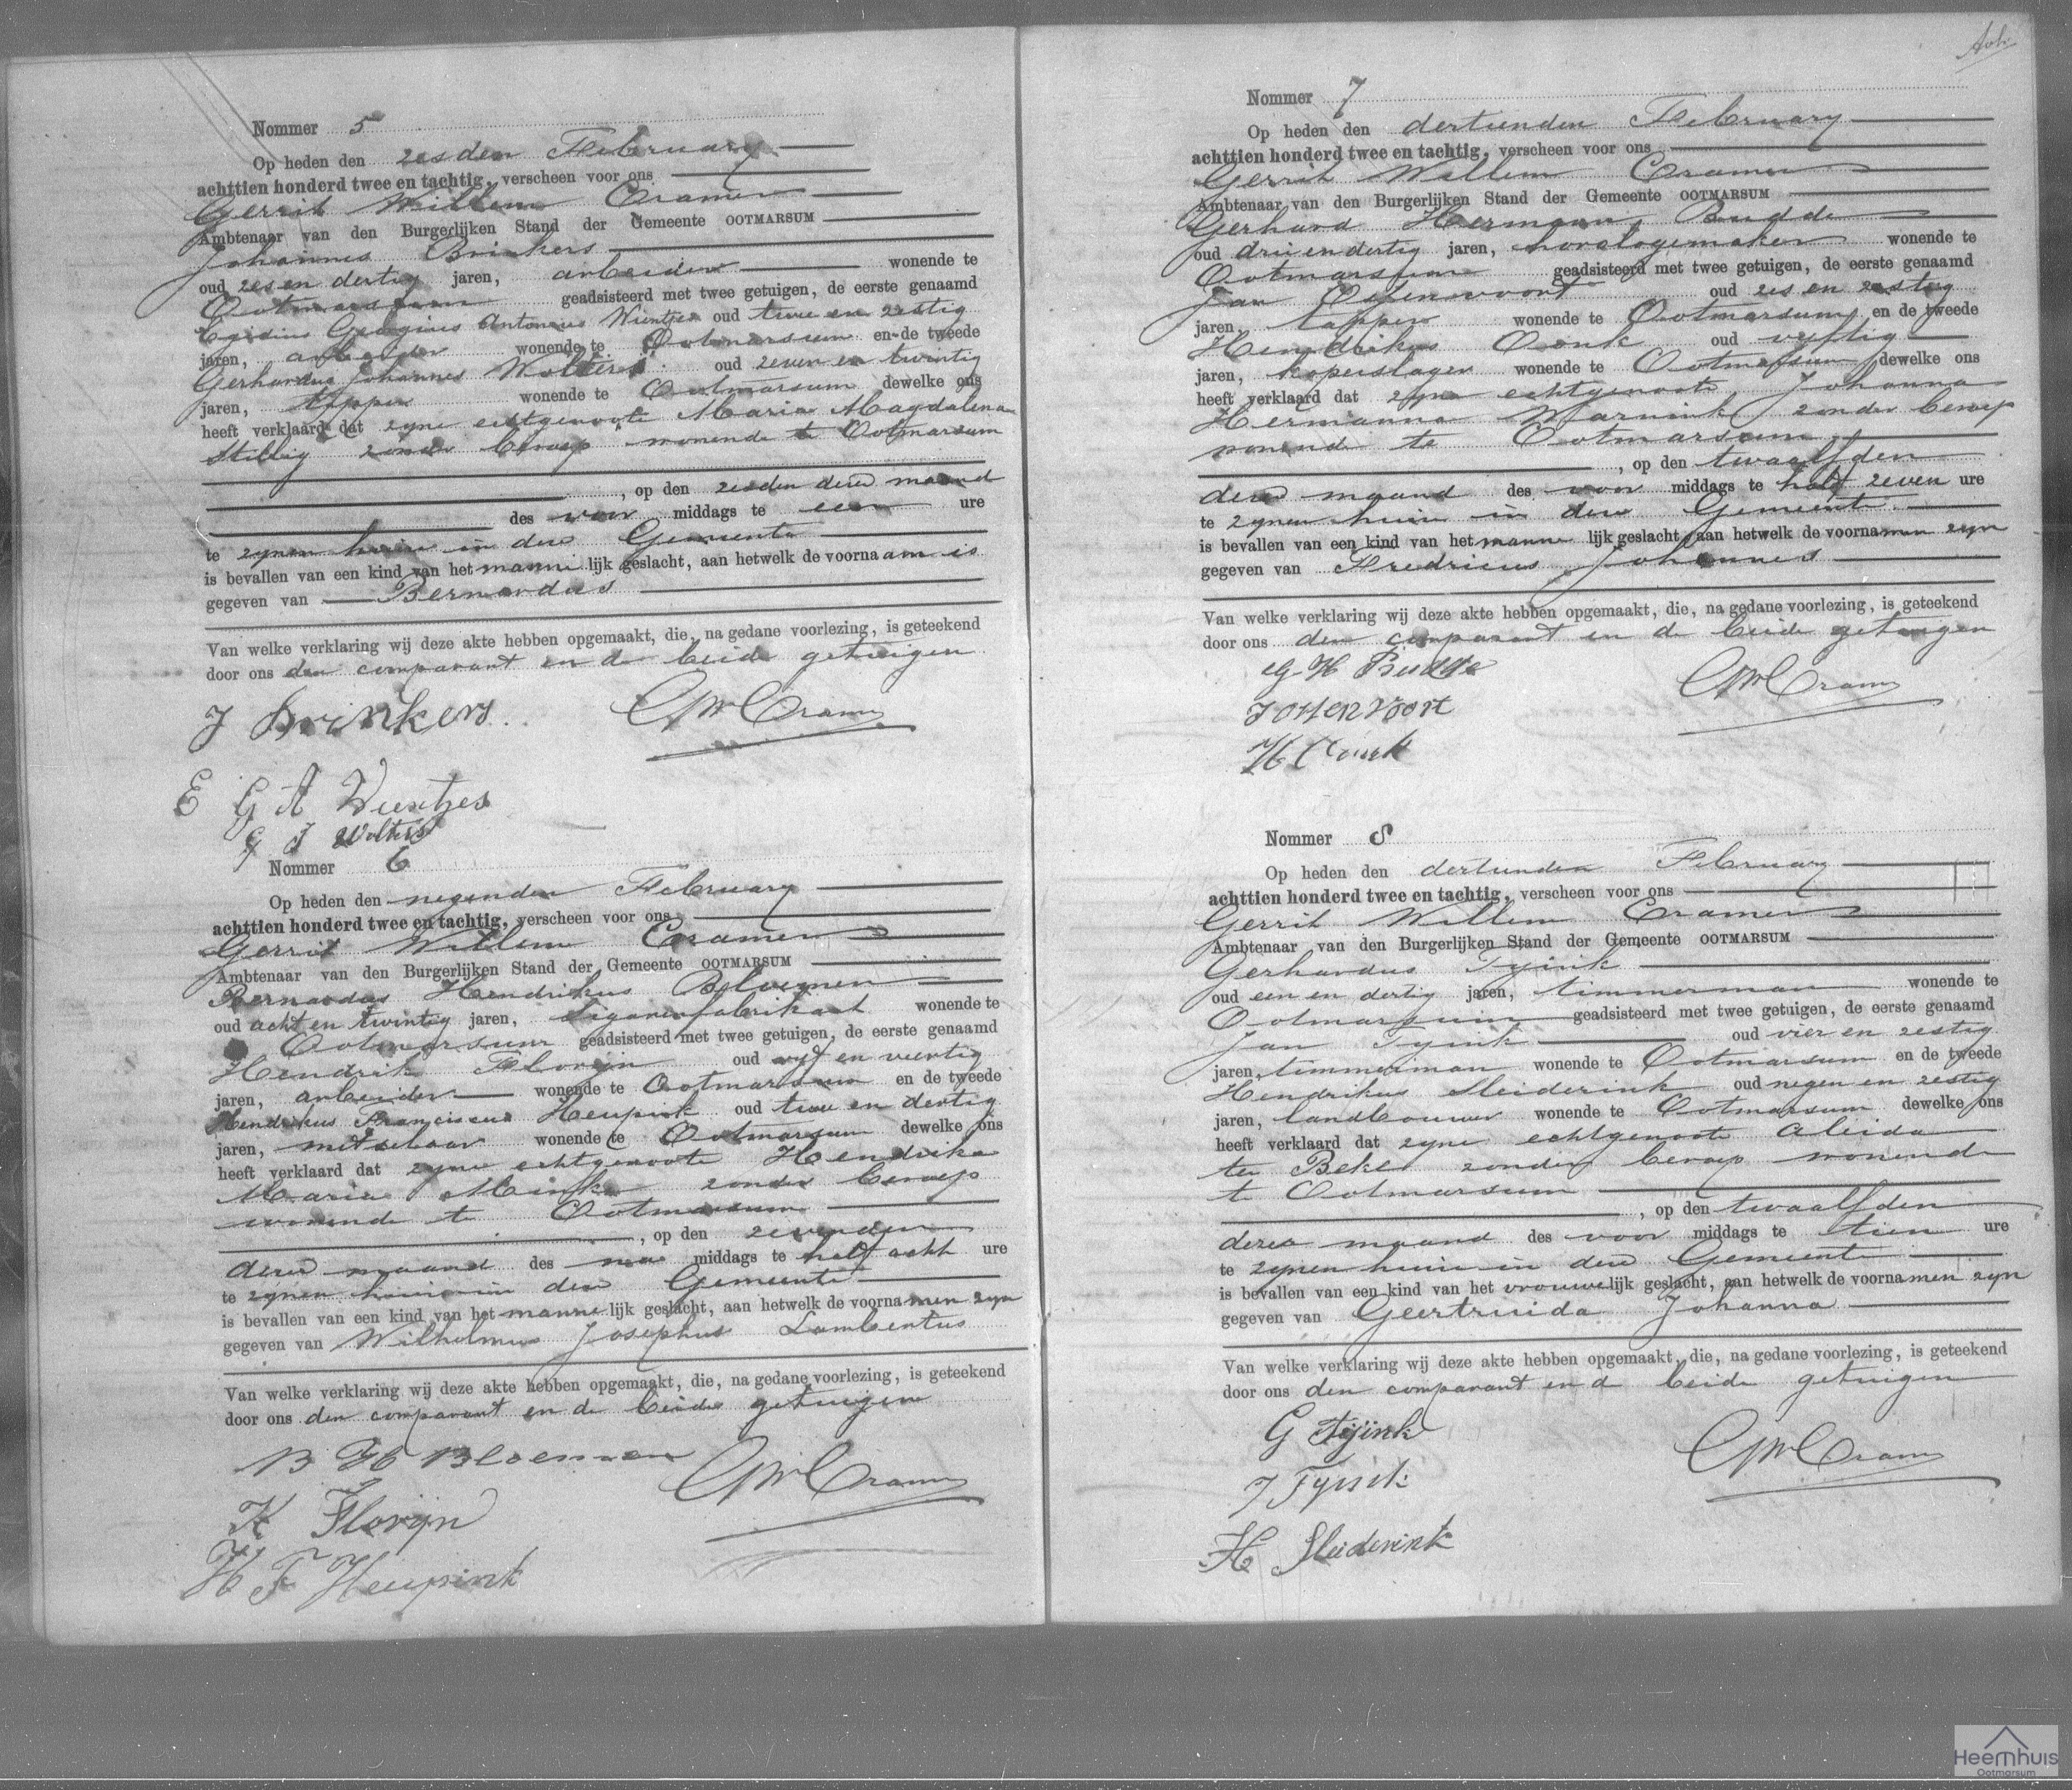 Nommer 5
Op heden den zesden February
achttien honderd twee en tachtig, verscheen voor ons
Gerrit Willem Cramer
Ambtenaar van den Burgerlijken Stand der Gemeente OOTMARSUM
Johannes Brinkers
oud zes en dertig jaren, arbeider wonende te
Ootmarsum geadsisteerd met twee getuigen, de eerste genaamd
Egidius Georgius Antonius Wientjes oud twee en zestig
jaren, arbeider wonende te Ootmarsum en de tweede
Gerhardus Johannes Wolters oud zeven en twintig
jaren, tapper wonende te Ootmarsum dewelke ons
heeft verklaard dat zyne echtgenoote Maria Magdalena
zonder beroep wonende te Ootmarsum
, op den zesden dezer maand
des voor middags te een ure
te zynen huize in deze Gemeente
is bevallen van een kind van het manne lijk geslacht, aan hetwelk de voornaam is
gegeven van Bernardus
Van welke verklaring wij deze akte hebben opgemaakt, die, na gedane voorlezing, is geteekend
door ons den comparant en de beide getuigen
J Brinkers GWCramer
E G A Wientjes
G J Wolters
Nommer 6
Op heden den negenden February
achttien honderd twee en tachtig, verscheen voor ons
Gerrit Willem Cramer
Ambtenaar van den Burgerlijken Stand der Gemeente OOTMARSUM
Bernardus Hendrikus Bloemen
oud acht en twintig jaren, sigarenfabrikant wonende te
Ootmarsum geadsisteerd met twee getuigen, de eerste genaamd
Hendrik Florijn oud vyf en veertig
jaren, arbeider wonende te Ootmarsum en de tweede
Hendrikus Franciscus Heupink oud twee en dertig
jaren, metselaar wonende te Ootmarsum dewelke ons
heeft verklaard dat zyne echtgenoote Hendrika
Maria zonder beroep
wonende te Ootmarsum
, op den zevenden
dezer maand des na middags te half acht ure
te zynen huize in deze Gemeente
is bevallen van een kind van het manne lijk geslacht, aan hetwelk de voornamen zyn
gegeven van Wilhelmus Josephus Lambertus
Van welke verklaring wij deze akte hebben opgemaakt, die, na gedane voorlezing, is geteekend
door ons den comparant en de beide getuigen
B H Bloemen GWCramer
H Florijn
H F Heupink
Nommer 7
Op heden den dertienden February
achttien honderd twee en tachtig, verscheen voor ons
Gerrit Willem Cramer
Ambtenaar van den Burgerlijken Stand der Gemeente OOTMARSUM
Gerhard Herman Budde
oud drieendertig jaren, horologemaker wonende te
Ootmarsum geadsisteerd met twee getuigen, de eerste genaamd
Jan oud zes en zestig
jaren, tapper wonende te Ootmarsum en de tweede
Hendrikus Oonk oud vyftig
jaren, koperslager wonende te Ootmarsum dewelke ons
heeft verklaard dat zyne echtgenoote Johanna
Hermanna Warmink zonder beroep
wonende te Ootmarsum
, op den twaalfden
dezer maand des voor middags te half zeven ure
te zynen huize in deze Gemeente
is bevallen van een kind van het manne lijk geslacht, aan hetwelk de voornamen zyn
gegeven van Fredricus Johannes
Van welke verklaring wij deze akte hebben opgemaakt, die, na gedane voorlezing, is geteekend
door ons den comparant en de beide getuigen
G H Budde GWCramer
H Oonk
Nommer 8
Op heden den dertienden February
achttien honderd twee en tachtig, verscheen voor ons
Gerrit Willem Cramer
Ambtenaar van den Burgerlijken Stand der Gemeente OOTMARSUM
Gerhardus Tyink
oud een en dertig jaren, timmerman wonende te
Ootmarsum geadsisteerd met twee getuigen, de eerste genaamd
Jan Tyink oud vier en zestig
jaren, timmerman wonende te Ootmarsum en de tweede
Hendrikus Sleiderink oud negen en zestig
jaren, landbouwer wonende te Ootmarsum dewelke ons
heeft verklaard dat zyne echtgenoote Aleida
ter Beke zonder beroep wonende
te Ootmarsum
, op den twaalfden
dezer maand des voor middags te tien ure
te zynen huize in deze Gemeente
is bevallen van een kind van het vrouwelijk geslacht, aan hetwelk de voornamen zyn
gegeven van Geertruida Johanna
Van welke verklaring wij deze akte hebben opgemaakt, die, na gedane voorlezing, is geteekend
door ons den comparant en d beide getuigen
G Tijink GWCramer
J Tyink
H Sleiderink
Heemhuis
Ootmarsum